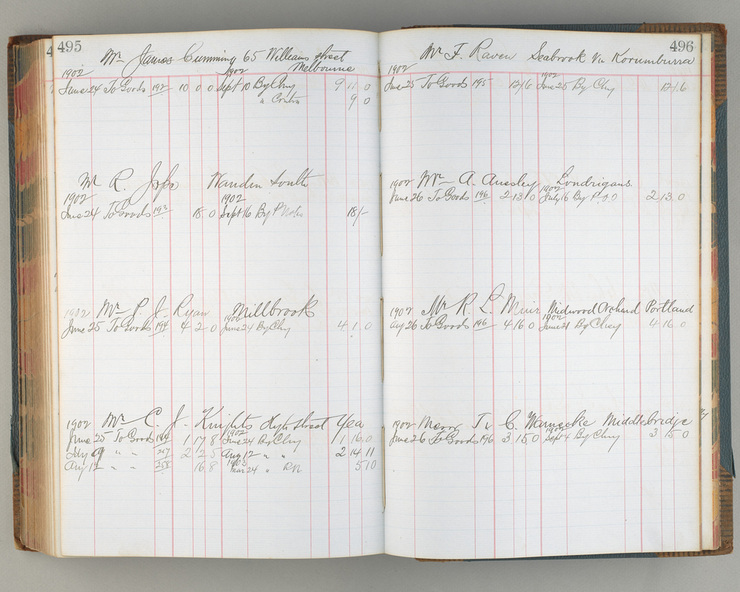 495
Mr James Cumming 65 William Street
Melbourne
1902 1902
June 24 To Goods 192 10 0 0 Sept 10 By Chq 9 11 0
" Contra 9 0
Mr R. Wandin South
1902 1902
June 24 To Goods 193 18 0 Sept 16 By P Note 18/-
1902 Mr P. J. Ryan Millbrook
June 25 To Goods 194 4 2 0 June 24 By Chq 4 1 0
1902 Mr C. J. Knights High Street Yea
1902
June 25 To Goods 1 17 8 June 24 By Chq 1 16 0
July 9 " " 207 2 2 5 Aug 12 " " 2 14 11
Aug 12 " " 16 8 Mar 24 " 5 10
1903
496
Mr F. Raven Seabrook Via Korumburra
1902 1902
June 25 To Goods 195 12/6 June 25 By Chq 12/6
1902 Mr A. Londrigans
1902
June 26 To Goods 196 2 13 0 July 16 By P.O.O 2 13 0
1902 Mr R. L. Muir Midwood Orchard Portland
1902
26 To Goods 196 4 16 0 By Chq 4 16 0
1902 Messrs J. & C. Warnecke Middlebridge
1902
June 26 To Goods 196 3 15 0 Sept 4 By Chq 3 15 0